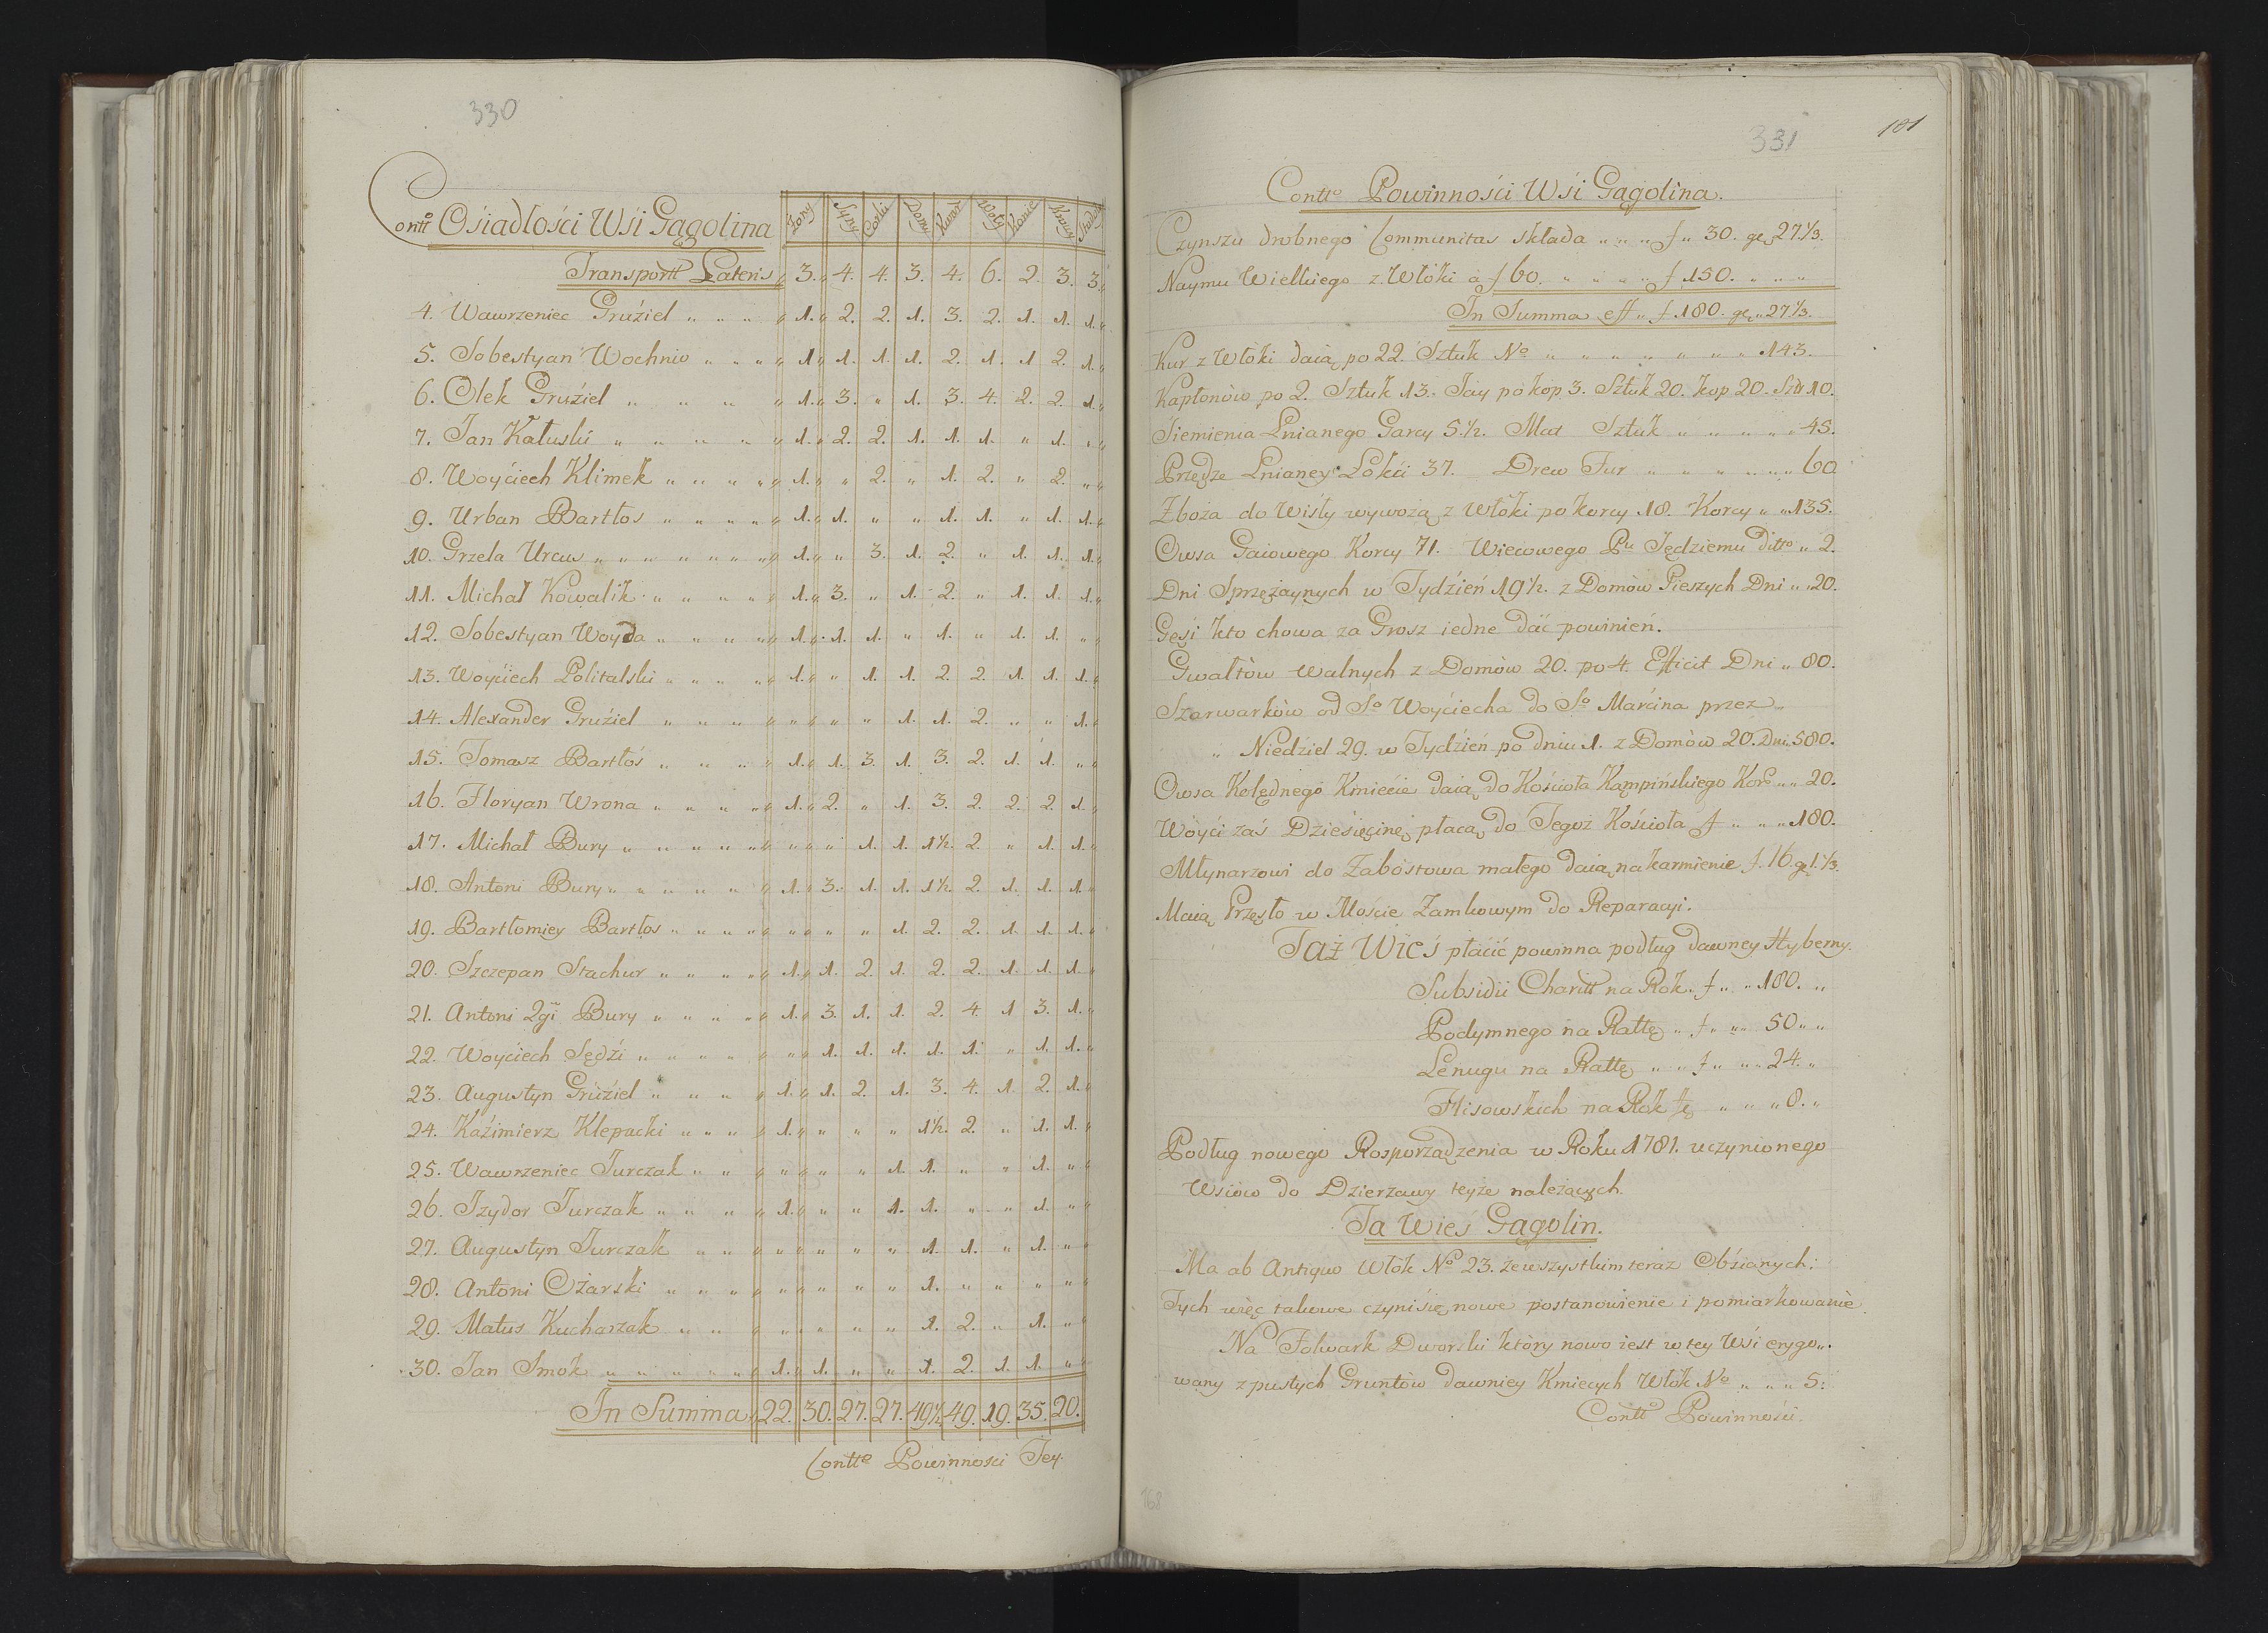 330
Contto Osiadłości Wśi Gągolina Żony Syny Corki Domy Kwar Woły Konie Krowy
Transportt Lateris 3. 4. 4. 3. 4. 6. 2. 3. 3.
4. Wawrzeniec Gruźiel „ „ „ 1. 2. 2. 1. 3. 2. 1. 1. 1.
5. Sobestyan Wochniw „ „ „ 1. 1. 1. 1. 2. 1. 1 2. 1.
6. Olek Gruźiel „ „ „ 1. 3. „ 1. 3. 4. 2. 2. 1.
7. Jan Kałuski „ „ „ „ 1. 2. 2. 1. 1. 1. „ 1. „
8. Woyćiech Klimek „ „ „ „ 1. „ 2. „ 1. 2. „ 2. „
9. Urban Bartłos „ „ „ „ 1. 1. „ „ 1. 1. „ 1. 1.
10. Grzela Urcuw „ „ „ „ „ „ 1. „ 3. 1. 2. „ 1. 1. 1.
11. Michał Kowalik „ „ „ „ 1. 3. „ 1. 2. „ 1. 1. 1.
12. Sobestyan Woyda „ „ „ „ 1. 1. 1. „ 1. „ 1. 1. „
13. Woyćiech Politalski „ „ „ „ 1. „ 1. 1. 2. 2. 1. 1. 1.
14. Alexander Gruźiel „ „ „ „ „ „ 1. 1. 2. „ „ 1.
15. Tomasz Bartłos „ „ „ 1. 1. 3. 1. 3. 2. 1. 1. „
16. Floryan Wrona „ „ „ „ 1. 2. „ 1. 3. 2. 2. 2. 1.
17. Michał Bury „ „ „ „ „ „ „ 1. 1. 1½. 2. „ 1. 1.
18. Antoni Bury „ „ „ „ „ 1. 3. 1. 1. 1½. 2. 1. 1. 1.
19. Bartłomiey Bartłos „ „ „ „ „ „ „ 1. 2. 2. 1. 1. 1.
20. Szczepan Stachur „ „ „ „ 1. 1. 2. 1. 2. 2. 1. 1. 1.
21. Antoni 2gi Bury „ „ „ „ 1. 3. 1. 1. 2. 4. 1 3. 1.
22. Woyciech Sędźi „ „ „ „ „ 1. 1. 1. 1. 1. „ 1. 1.
23. Augustyn Gruźiel „ „ „ 1. 1. 2. 1. 3. 4. 1. 2. 1.
24. Kaźimierz Klepacki „ „ „ 1. „ „ „ 1½. 2. „ 1. 1.
25. Wawrzeniec Jurczak „ „ „ „ „ 1. 1. „ „ 1. „
26. Jzydor Jurczak „ „ „ 1. „ „ 1. 1. „ „ 1. „
27. Augustyn Jurczak „ „ „ „ „ „ 1. 1. „ 1. „
28. Antoni Ożarski „ „ „ „ „ „ „ 1. „ „ „ „
29. Matus Kucharzak „ „ „ „ „ „ 1. 2. „ 1. „
30. Jan Smok „ „ „ „ „ 1. 1. „ „ 1. 2. 1. 1. „
In Summa 22. 30. 27. 27. 49½. 49. 19. 35. 20.
Contto Powinnosci Tey.
331
181
Contto Powinnośći Wśi Gągolina.
Czynszu drobnego Communitas składa „ „ „ f „ 30. gr 27⅓.
Naymu Wielkiego z Włoki à f 60. „ „ „ „ f 150. „ „ „
In Summa eff „ f 180. gr „ 27⅓.
Kur z Włoki daią po 22. Sztuk No „ „ „ „ „ „ „ 143.
Kapłonów po 2. Sztuk 13. Jay po kop 3. Sztuk 20. kop 20. Szt 10.
Siemienia Lnianego Garcy 5½. Mat Sztuk „ „ „ „ „ 45.
Przędze Lnianey Łokći 37. Drew Fur „ „ „ „ „ „ 60
Zboża do Wisły wywożą z Włóki po korcy 18. Korcy „ „ 135.
Owsa Gaiowego Korcy 71. Wiecowego Pu Sędziemu ditto „ 2.
Dni Sprzężaynych w Tydźień 19½. z Domòw Pieszych Dni „ 20.
Gęsi kto chowa za Grosz iedne dać powinień.
Gwałtòw walnych z Domòw 20. po 4. Efficit Dni „ 80.
Szarwarkòw od So Woyćiecha do So Marćina przez
„ Niedźiel 29. w Tydźień po dniu 1. z Domòw 20. Dni 580.
Owsa Kolędnego Kmiećie daią do Kośćioła Kąmpińskiego Kor „ „ 20.
Wòyći zaś Dziesięćinę płacą do Tegoż Kośćioła f „ „ „ 180.
Młynarzowi do Zabostowa małego daią na karmienie f. 16 gr 1⅓.
Maią Przęsło w Mośćie Zamkowym do Reparacyi.
Taż Wieś płaćić powinna podług dawney Hyberny.
Subsidii Charitt na Rok. f „ „ 180. „
Podymnego na Rattę „ f „ „ 50 „ „
Lenugu na Rattę „ „ f „ „ 24. „
Flisowskich na Rok „ „ „ 8. „
Podług nowego Rosporządzenia w Roku 1781. uczynionego
Wsiow do Dzierzawy teyże należących.
Ta Wieś Gągolin.
Ma ab Antiquo Włók No 23. ze wszystkim teraz Obśianych.
Tych więc takowe czyni się nowe postanowienie i pomiarkowanie.
Na Folwark Dworski który nowo iest w tey Wśi erygo„
wany z pustych Gruntòw dawniey Kmiecych Włok No „ „ „ 5.
Contto Powinnosci.
168